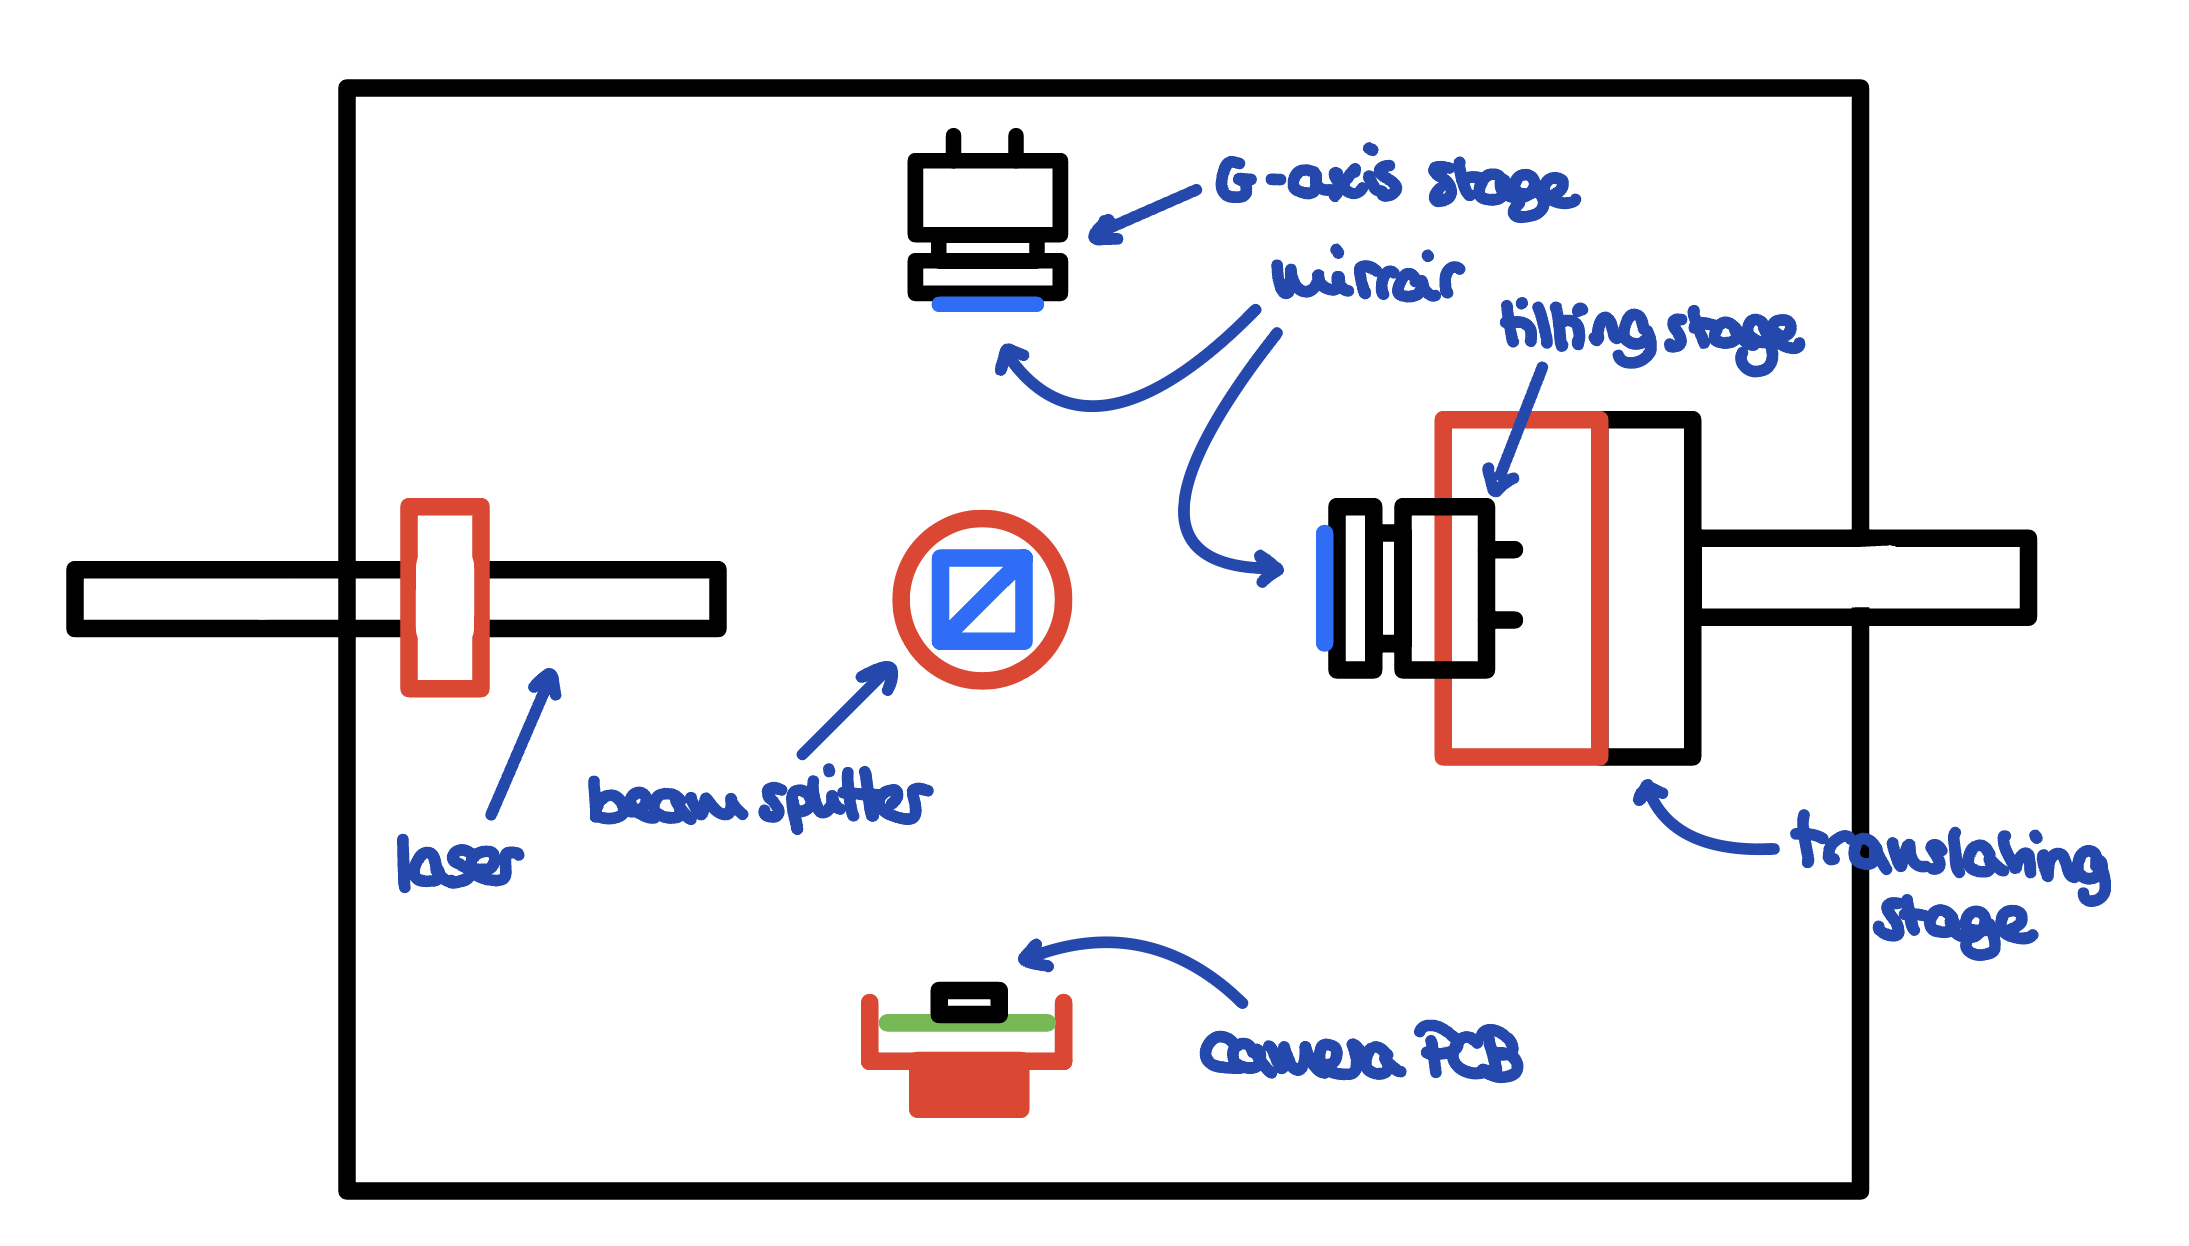 G-axis stage
mirror
tilting stage
beam splitter
laser
translating
stage
camera PCB